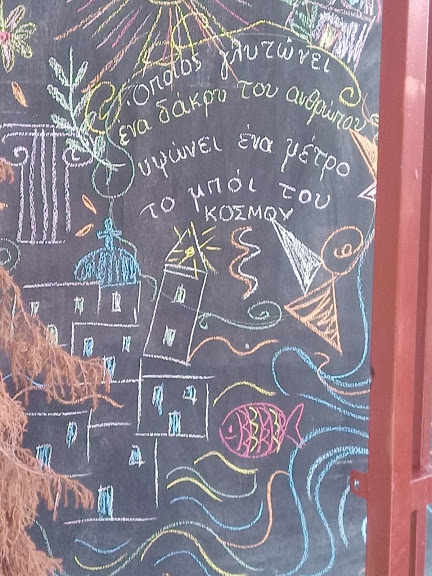 Όποιος γλυτώνει
ένα δάκρυ του ανθρώπου
υψώνει ένα μέτρο
το μπόι του
ΚΟΣΜΟΥ